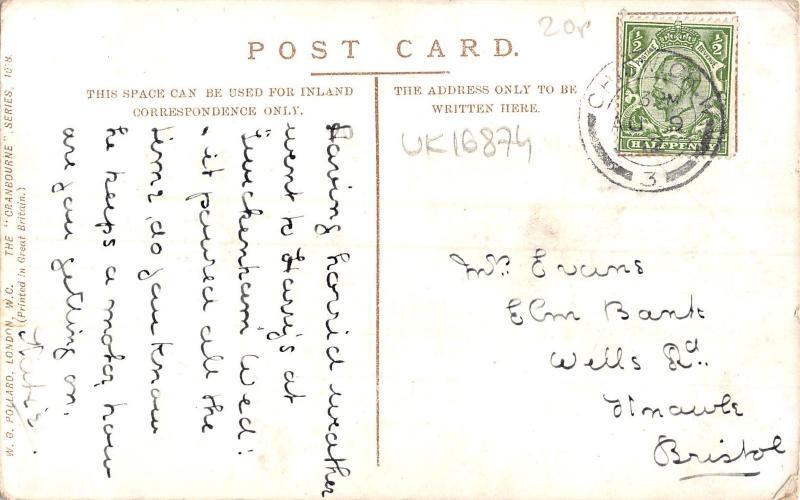 POST CARD.
THIS SPACE CAN BE USED FOR INLAND
CORRESPONDENCE ONLY.
THE ADDRESS ONLY TO BE
WRITTEN HERE.
20p
UK16874
½ ½
POSTAGE REVENUE
HALFPENNY
3
Having horrid weather
went to Harry's at
Twickenham Wed:
& it poured all the
time, do you know
he keeps a motor, how
are you getting on.
Mrs. Evans
Elm Bank
Wells Rd.
Bristol
W. G. POLLARD, LONDON, W.C. THE "CRANBOURNE" SERIES, 1038.
(Printed in Great Britain.)